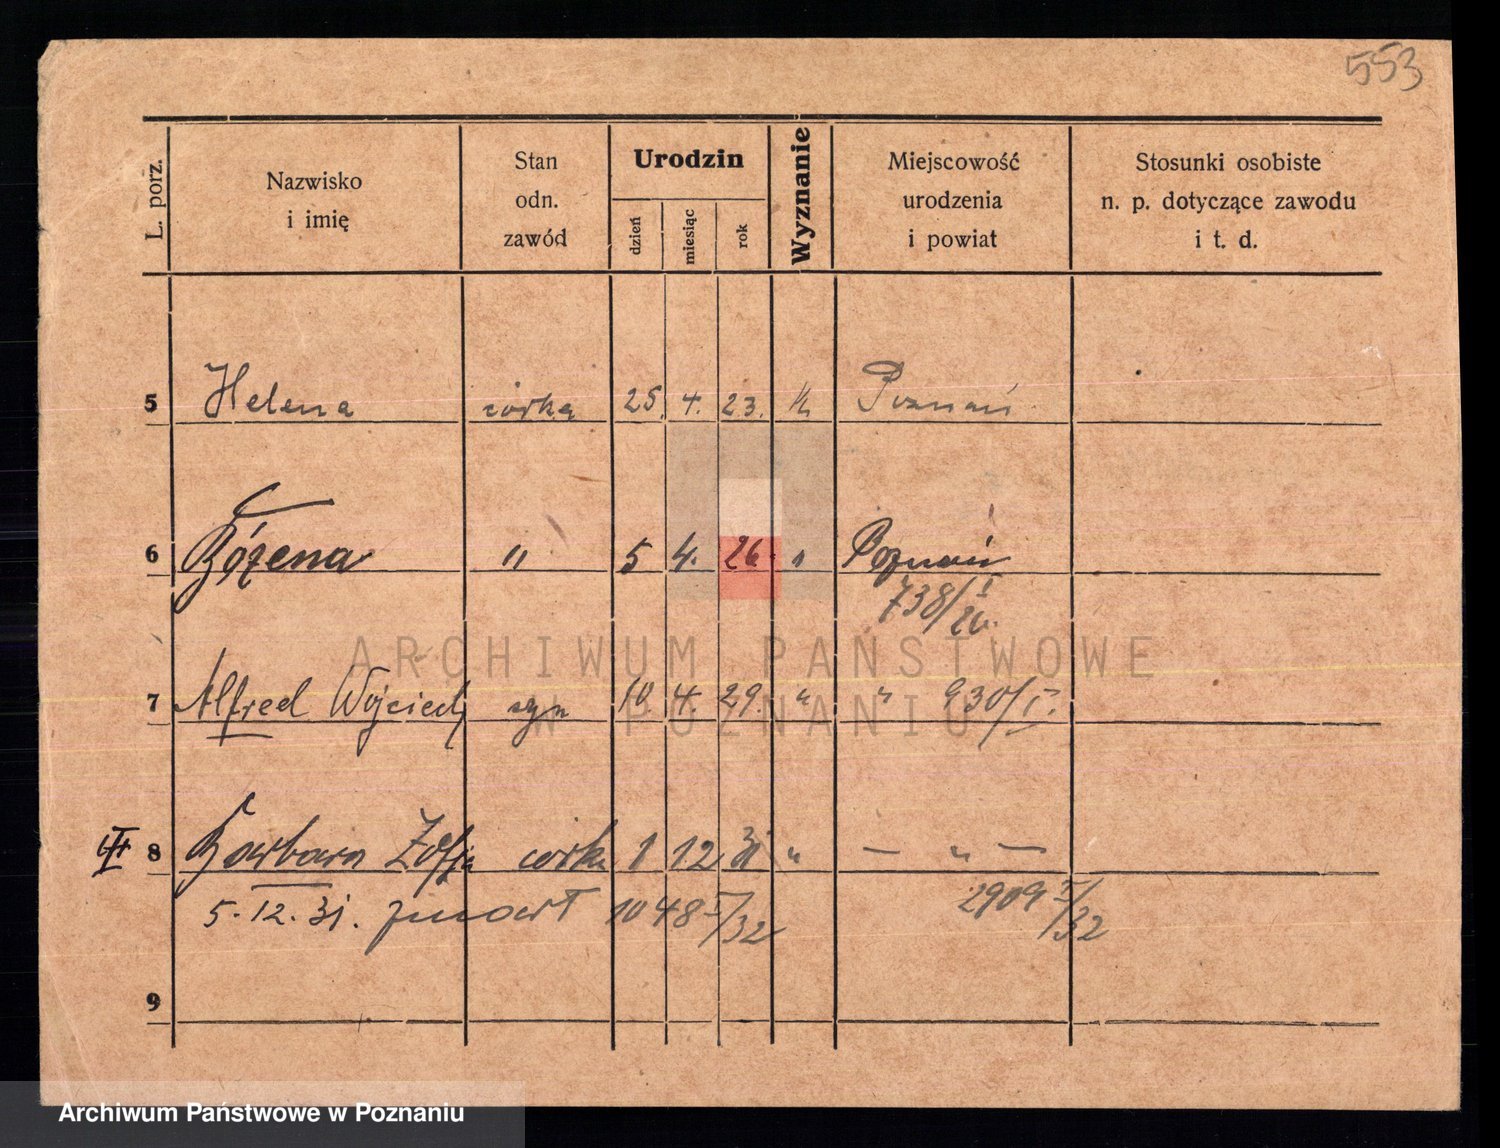 553
L. porz.
Nazwisko
i imię
Stan
odn.
zawód
Urodzin
dzień
miesiąc
rok
Wyznanie
Miejscowość
urodzenia
i powiat
Stosunki osobiste
n. p. dotyczące zawodu
i t. d.
5 Helena córka 25. 4. 23. k Poznań
6 Bożena " 5 4. 26. " Poznań
738/I
26.
7 Alfred Wojciech syn 10. 4. 29. " " 930/I.
8 Barbara Zofja córka 1 12 31 " — " —
5. 12. 31. zmarł 1048 I/32 2909 I/32
9
ARCHIWUM PAŃSTWOWE
W POZNANIU
Archiwum Państwowe w Poznaniu